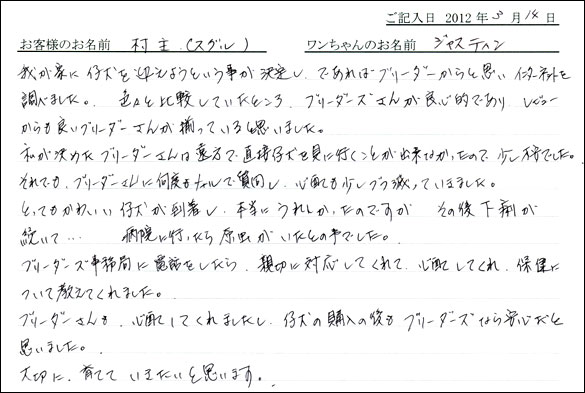 ご記入日 2012年5月14日
お客様のお名前 村主(スグル) ワンちゃんのお名前 ジャスティン
我が家に仔犬を迎えようという事が決定し、であればブリーダーからと思いインターネットを
調べました。色々と比較していたところ、ブリーダーズさんが良心的であり レビュー
からも良いブリーダーさんが揃っていると思いました。
私が決めたブリーダーさんは遠方で直接仔犬を見に行くことが出来なかったので少し不安でした。
それでも、ブリーダーさんに何度もメールで質問し、心配も少しづつ減っていきました。
とってもかわいい仔犬が到着し、本当にうれしかったのですが その後下痢が
続いて… 病院に行ったら原虫がいたとの事でした。
ブリーダーズ事務局に電話をしたら、親切に対応してくれて、心配してくれ、保健に
ついて教えてくれました。
ブリーダーさんも、心配してくれましたし、仔犬の購入の後も ブリーダーズなら安心だと
思いました。
大切に、育てて いきたいと思います。